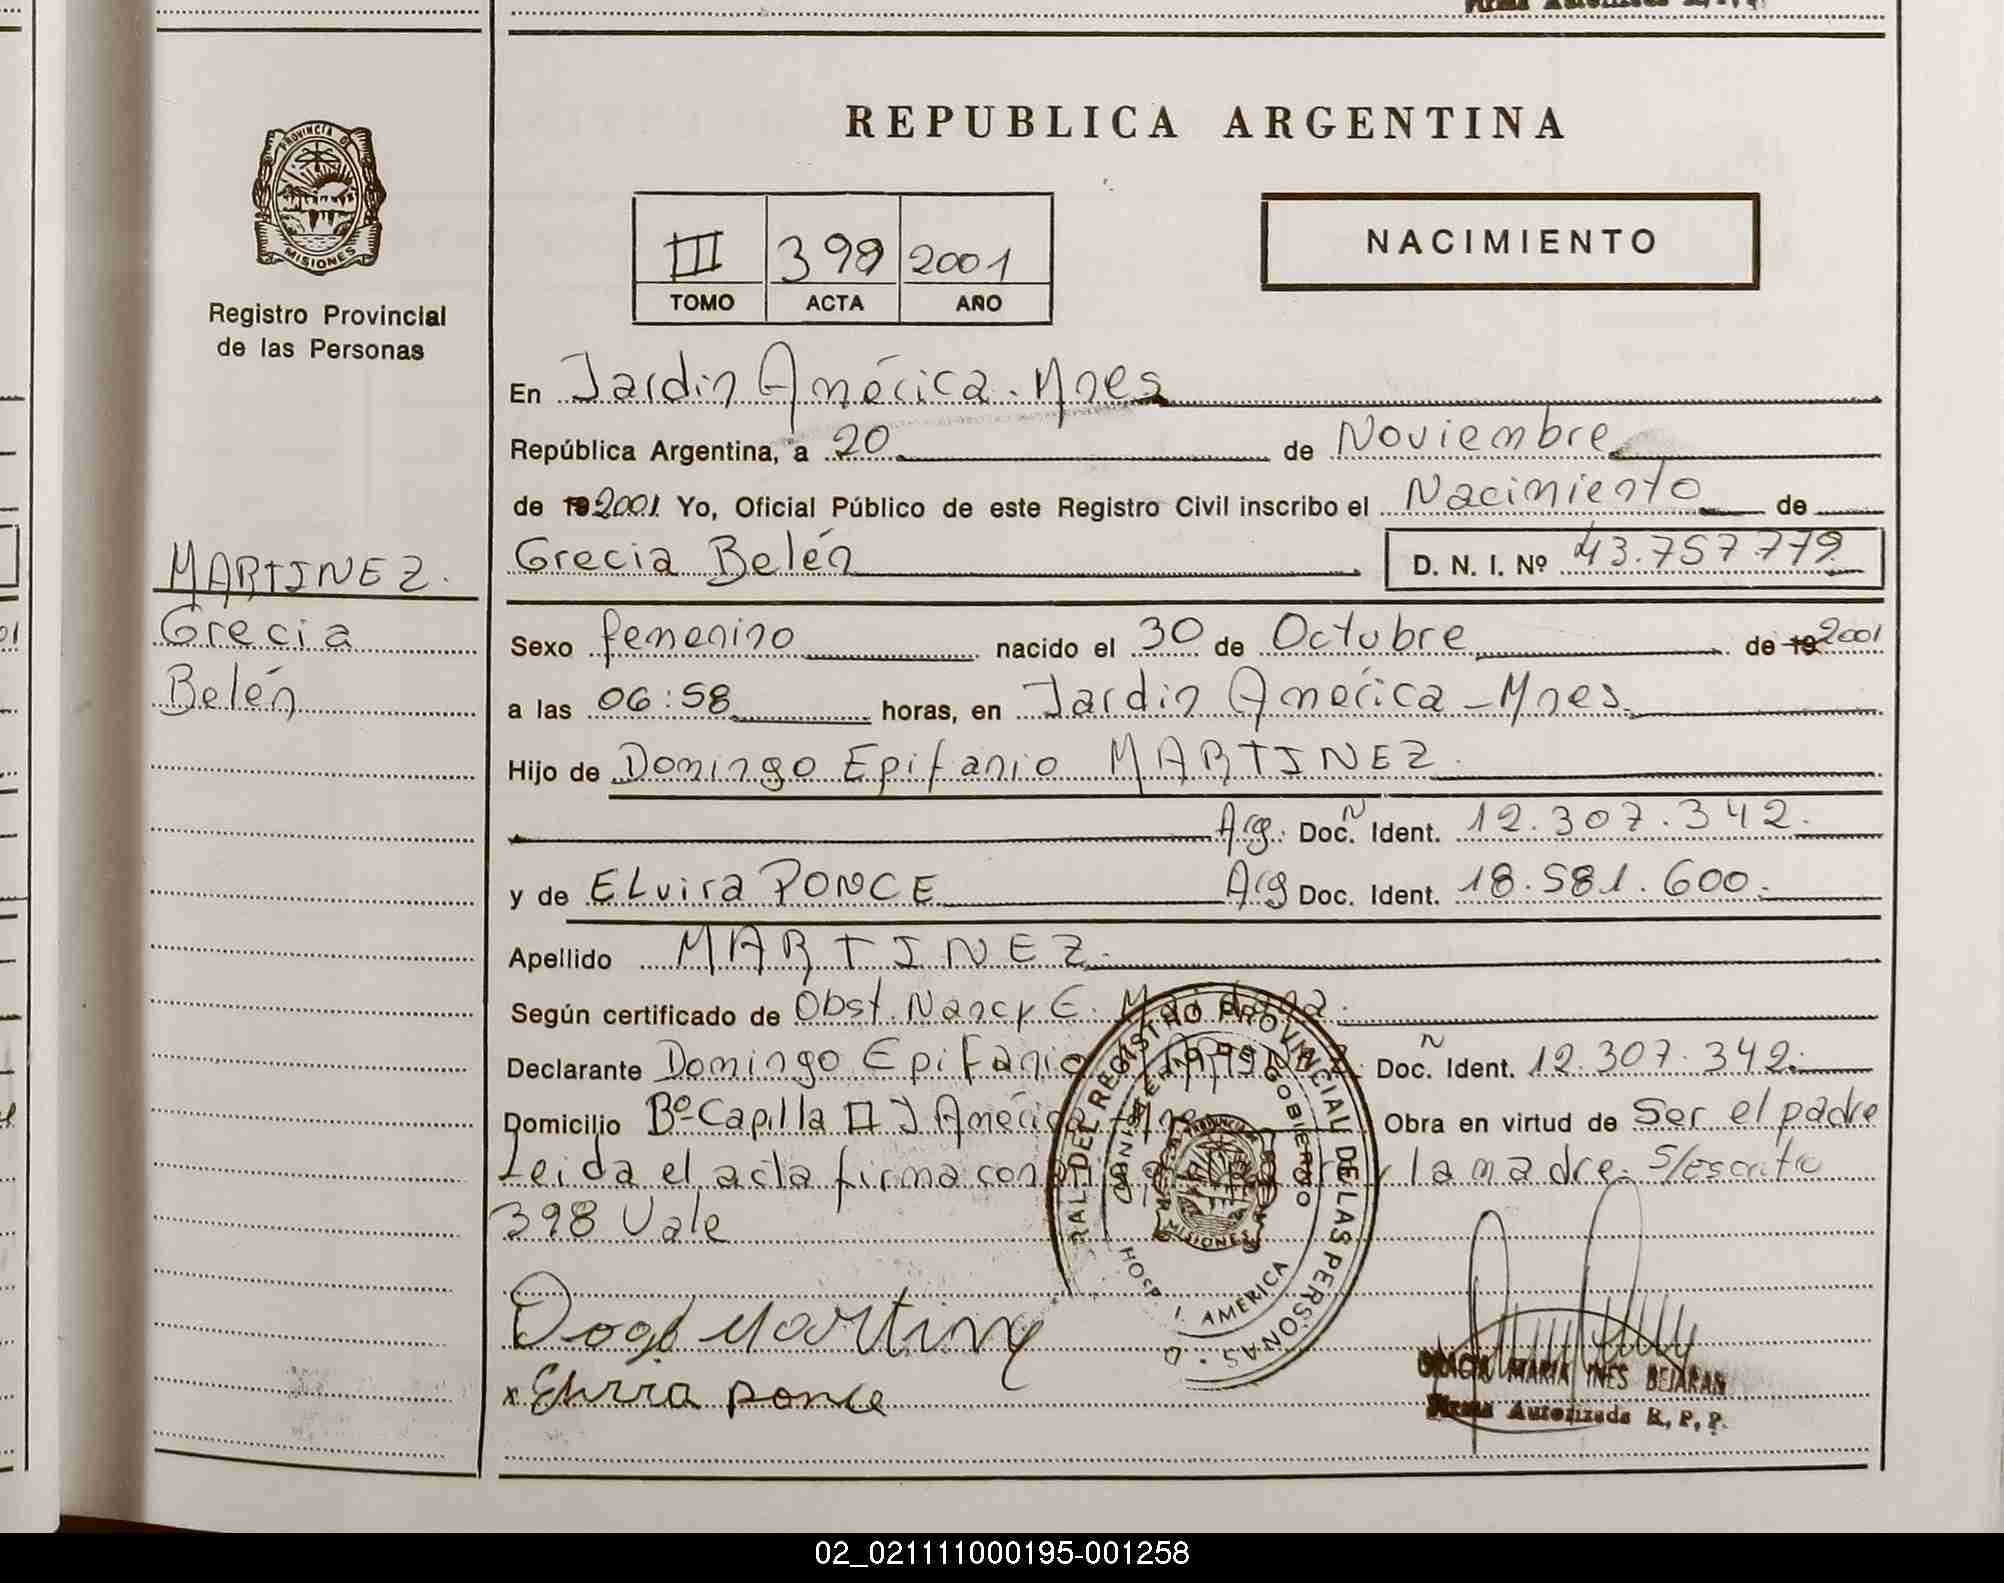 REPUBLICA ARGENTINA
PROVINCIA DE
MISIONES
Registro Provincial
de las Personas
NACIMIENTO
III 398 2001
TOMO ACTA AÑO
En Jardin América - Mnes
República Argentina, a 20 de Noviembre
de 19 2001 Yo, Oficial Público de este Registro Civil inscribo el Nacimiento de
Grecia Belén D. N. I. Nº 43.757.779
MARTINEZ.
Grecia
Belén
Sexo femenino nacido el 30 de Octubre de 19 2001
a las 06:58 horas, en Jardin América - Mnes.
Hijo de Domingo Epifanio MARTINEZ.
Arg. Doc. N Ident. 12.307.342.
y de ELvira PONCE Arg Doc. Ident. 18.581.600.
Apellido MARTINEZ.
Según certificado de Obst. Nancy E. Maidana.
Declarante Domingo Epifanio Doc. N Ident. 12.307.342.
Domicilio Bº Capilla II J América - Mnes Obra en virtud de Ser el padre
Leida el acta firma con la madre. S/escrito
398 Vale
RAL DEL REGISTRO PROVINCIAL DE LAS PERSONAS
MINISTERIO DE GOBIERNO
MISIONES
HOSP. I. AMERICA
Dogo Martinez
x Elvira ponce
MARIA YNES BEJARAN
Firma Autorizada R. P. P.
02_021111000195-001258